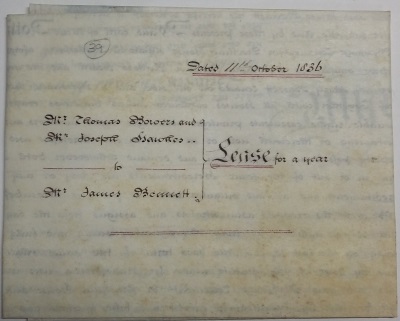 39
Dated 11th October 1836
Mr. Thomas Bowers and
Mr. Joseph Hawkes
to
Mr. James Bennett
Lease for a year